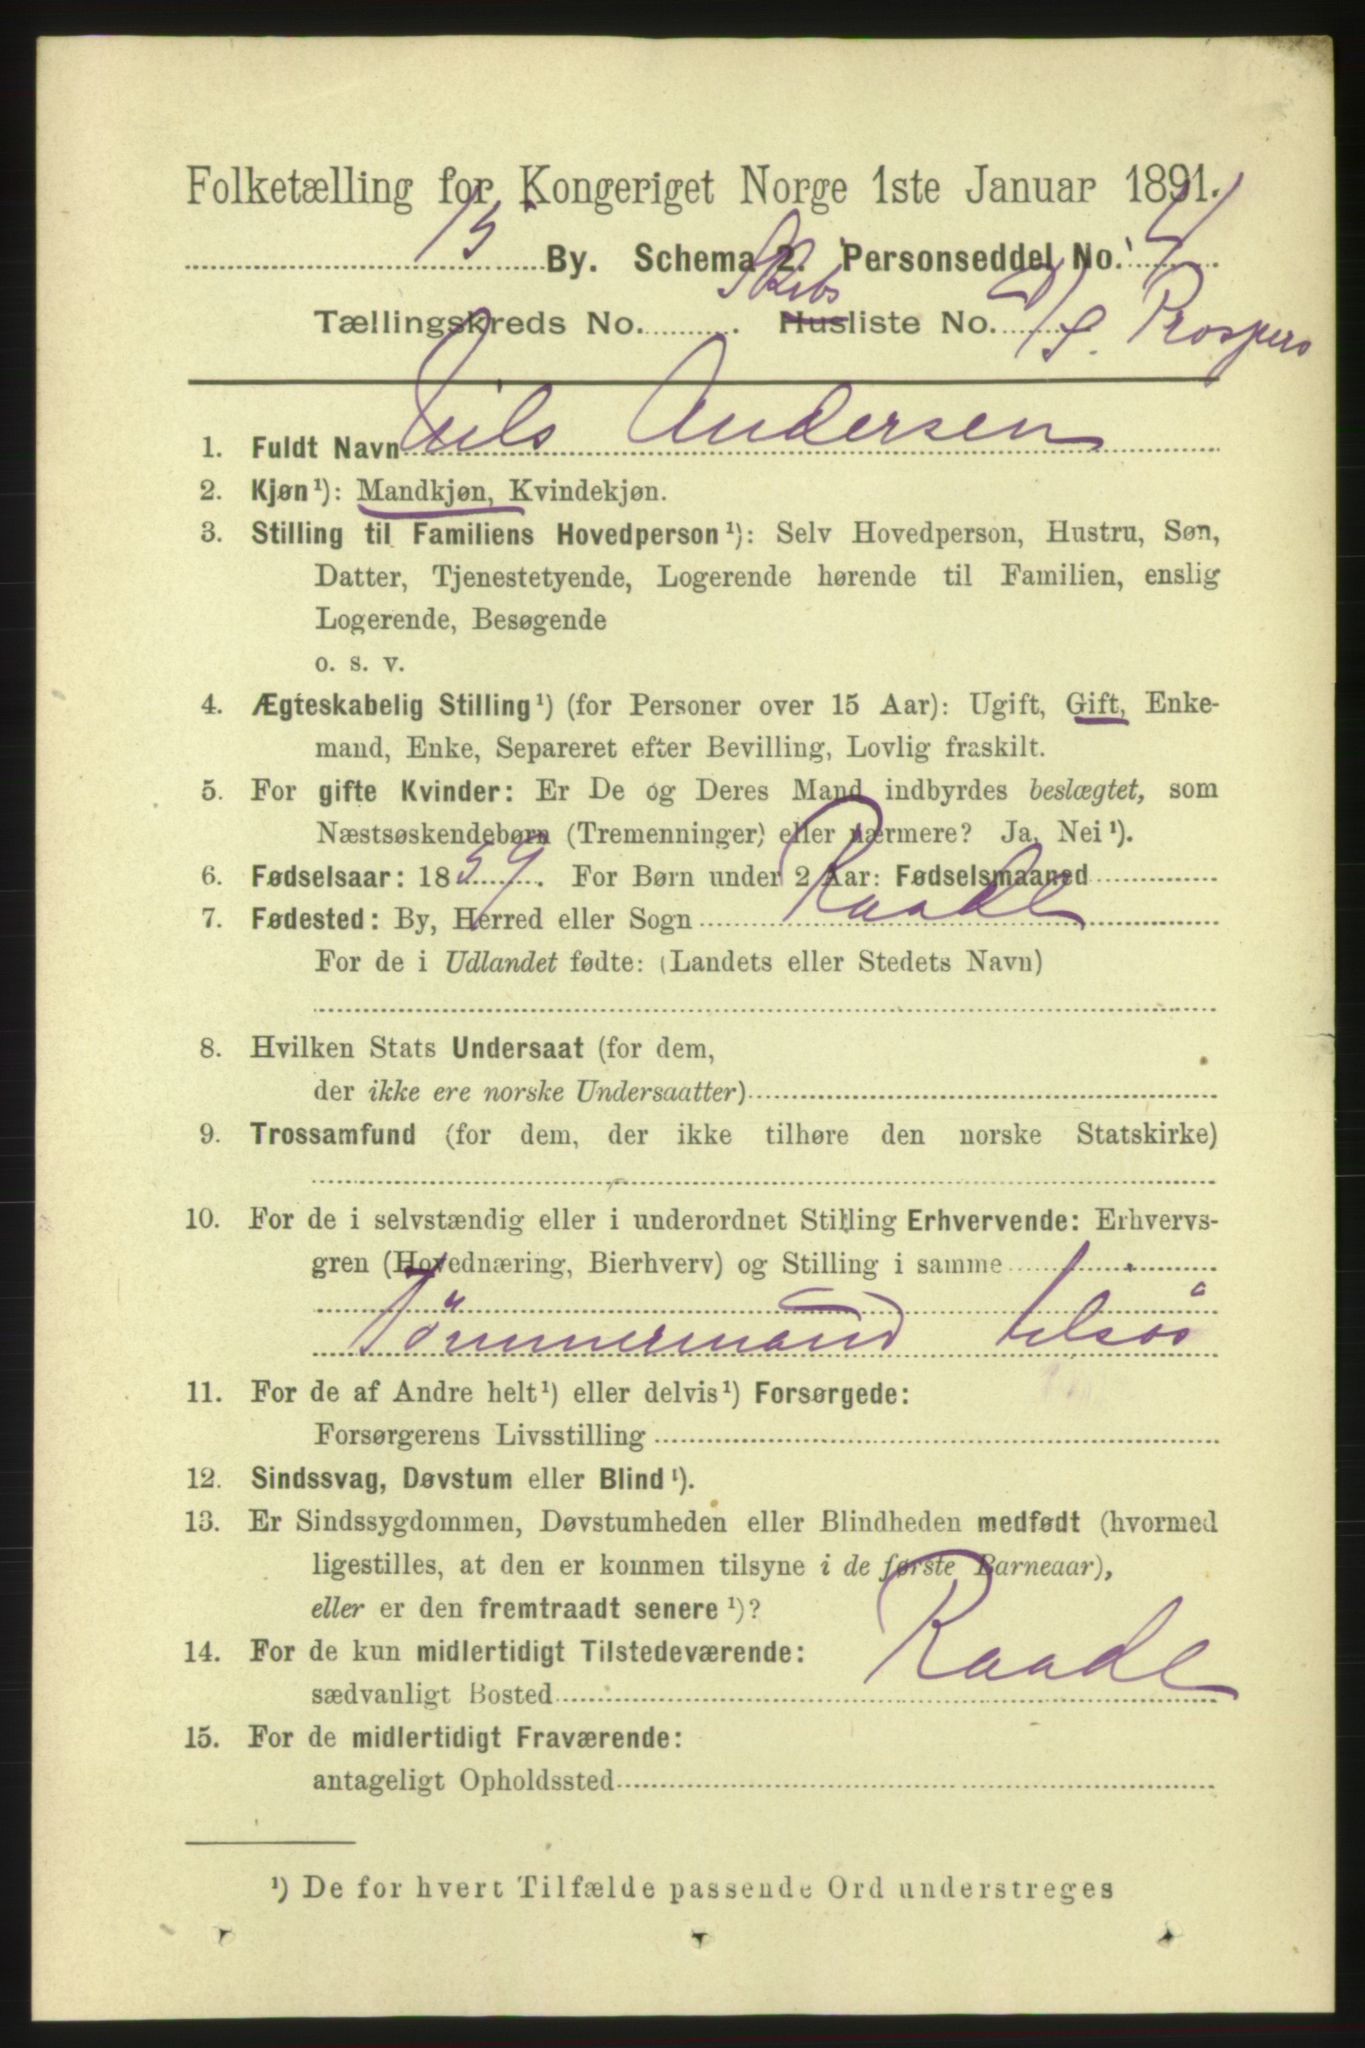 Folketælling for Kongeriget Norge 1ste Januar 1891.
15 By. Schema 2. Personseddel No. 4
Skibs
Tællingskreds No. Husliste No. D/S. Prospero
1. Fuldt Navn Nils Andersen
2. Kjøn¹): Mandkjøn, Kvindekjøn.
3. Stilling til Familiens Hovedperson¹): Selv Hovedperson, Hustru, Søn,
Datter, Tjenestetyende, Logerende hørende til Familien, enslig
Logerende, Besøgende
o. s. v.
4. Ægteskabelig Stilling¹) (for Personer over 15 Aar): Ugift, Gift, Enke-
mand, Enke, Separeret efter Bevilling, Lovlig fraskilt.
5. For gifte Kvinder: Er De og Deres Mand indbyrdes beslægtet, som
Næstsøskendebørn (Tremenninger) eller nærmere? Ja, Nei¹).
6. Fødselsaar: 1859. For Børn under 2 Aar: Fødselsmaaned
7. Fødested: By, Herred eller Sogn Raade
For de i Udlandet fødte: (Landets eller Stedets Navn)
8. Hvilken Stats Undersaat (for dem,
der ikke ere norske Undersaatter)
9. Trossamfund (for dem, der ikke tilhøre den norske Statskirke)
10. For de i selvstændig eller i underordnet Stilling Erhvervende: Erhvervs-
gren (Hovednæring, Bierhverv) og Stilling i samme
Tömmermand tilsös
11. For de af Andre helt¹) eller delvis¹) Forsørgede:
Forsørgerens Livsstilling
12. Sindssvag, Døvstum eller Blind¹).
13. Er Sindssygdommen, Døvstumheden eller Blindheden medfødt (hvormed
ligestilles, at den er kommen tilsyne i de første Barneaar),
eller er den fremtraadt senere¹)?
14. For de kun midlertidigt Tilstedeværende:
sædvanligt Bosted Raade
15. For de midlertidigt Fraværende:
antageligt Opholdssted
¹) De for hvert Tilfælde passende Ord understreges